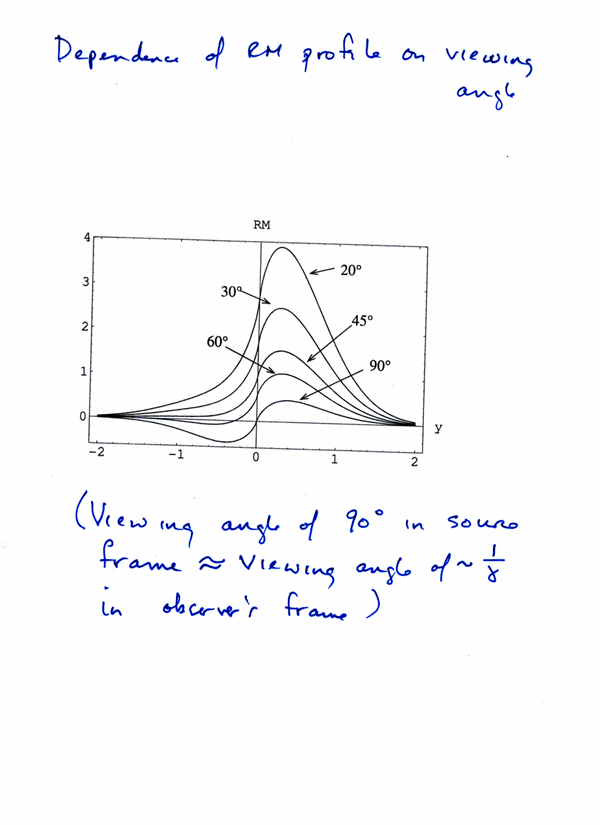 Dependence of RM profile on viewing
angle
RM
4
3
2
1
0
-2
-1
0
1
2
y
20°
30°
45°
60°
90°
(Viewing angle of 90° in source
frame ≈ viewing angle of ~ 1/γ
in observer's frame)